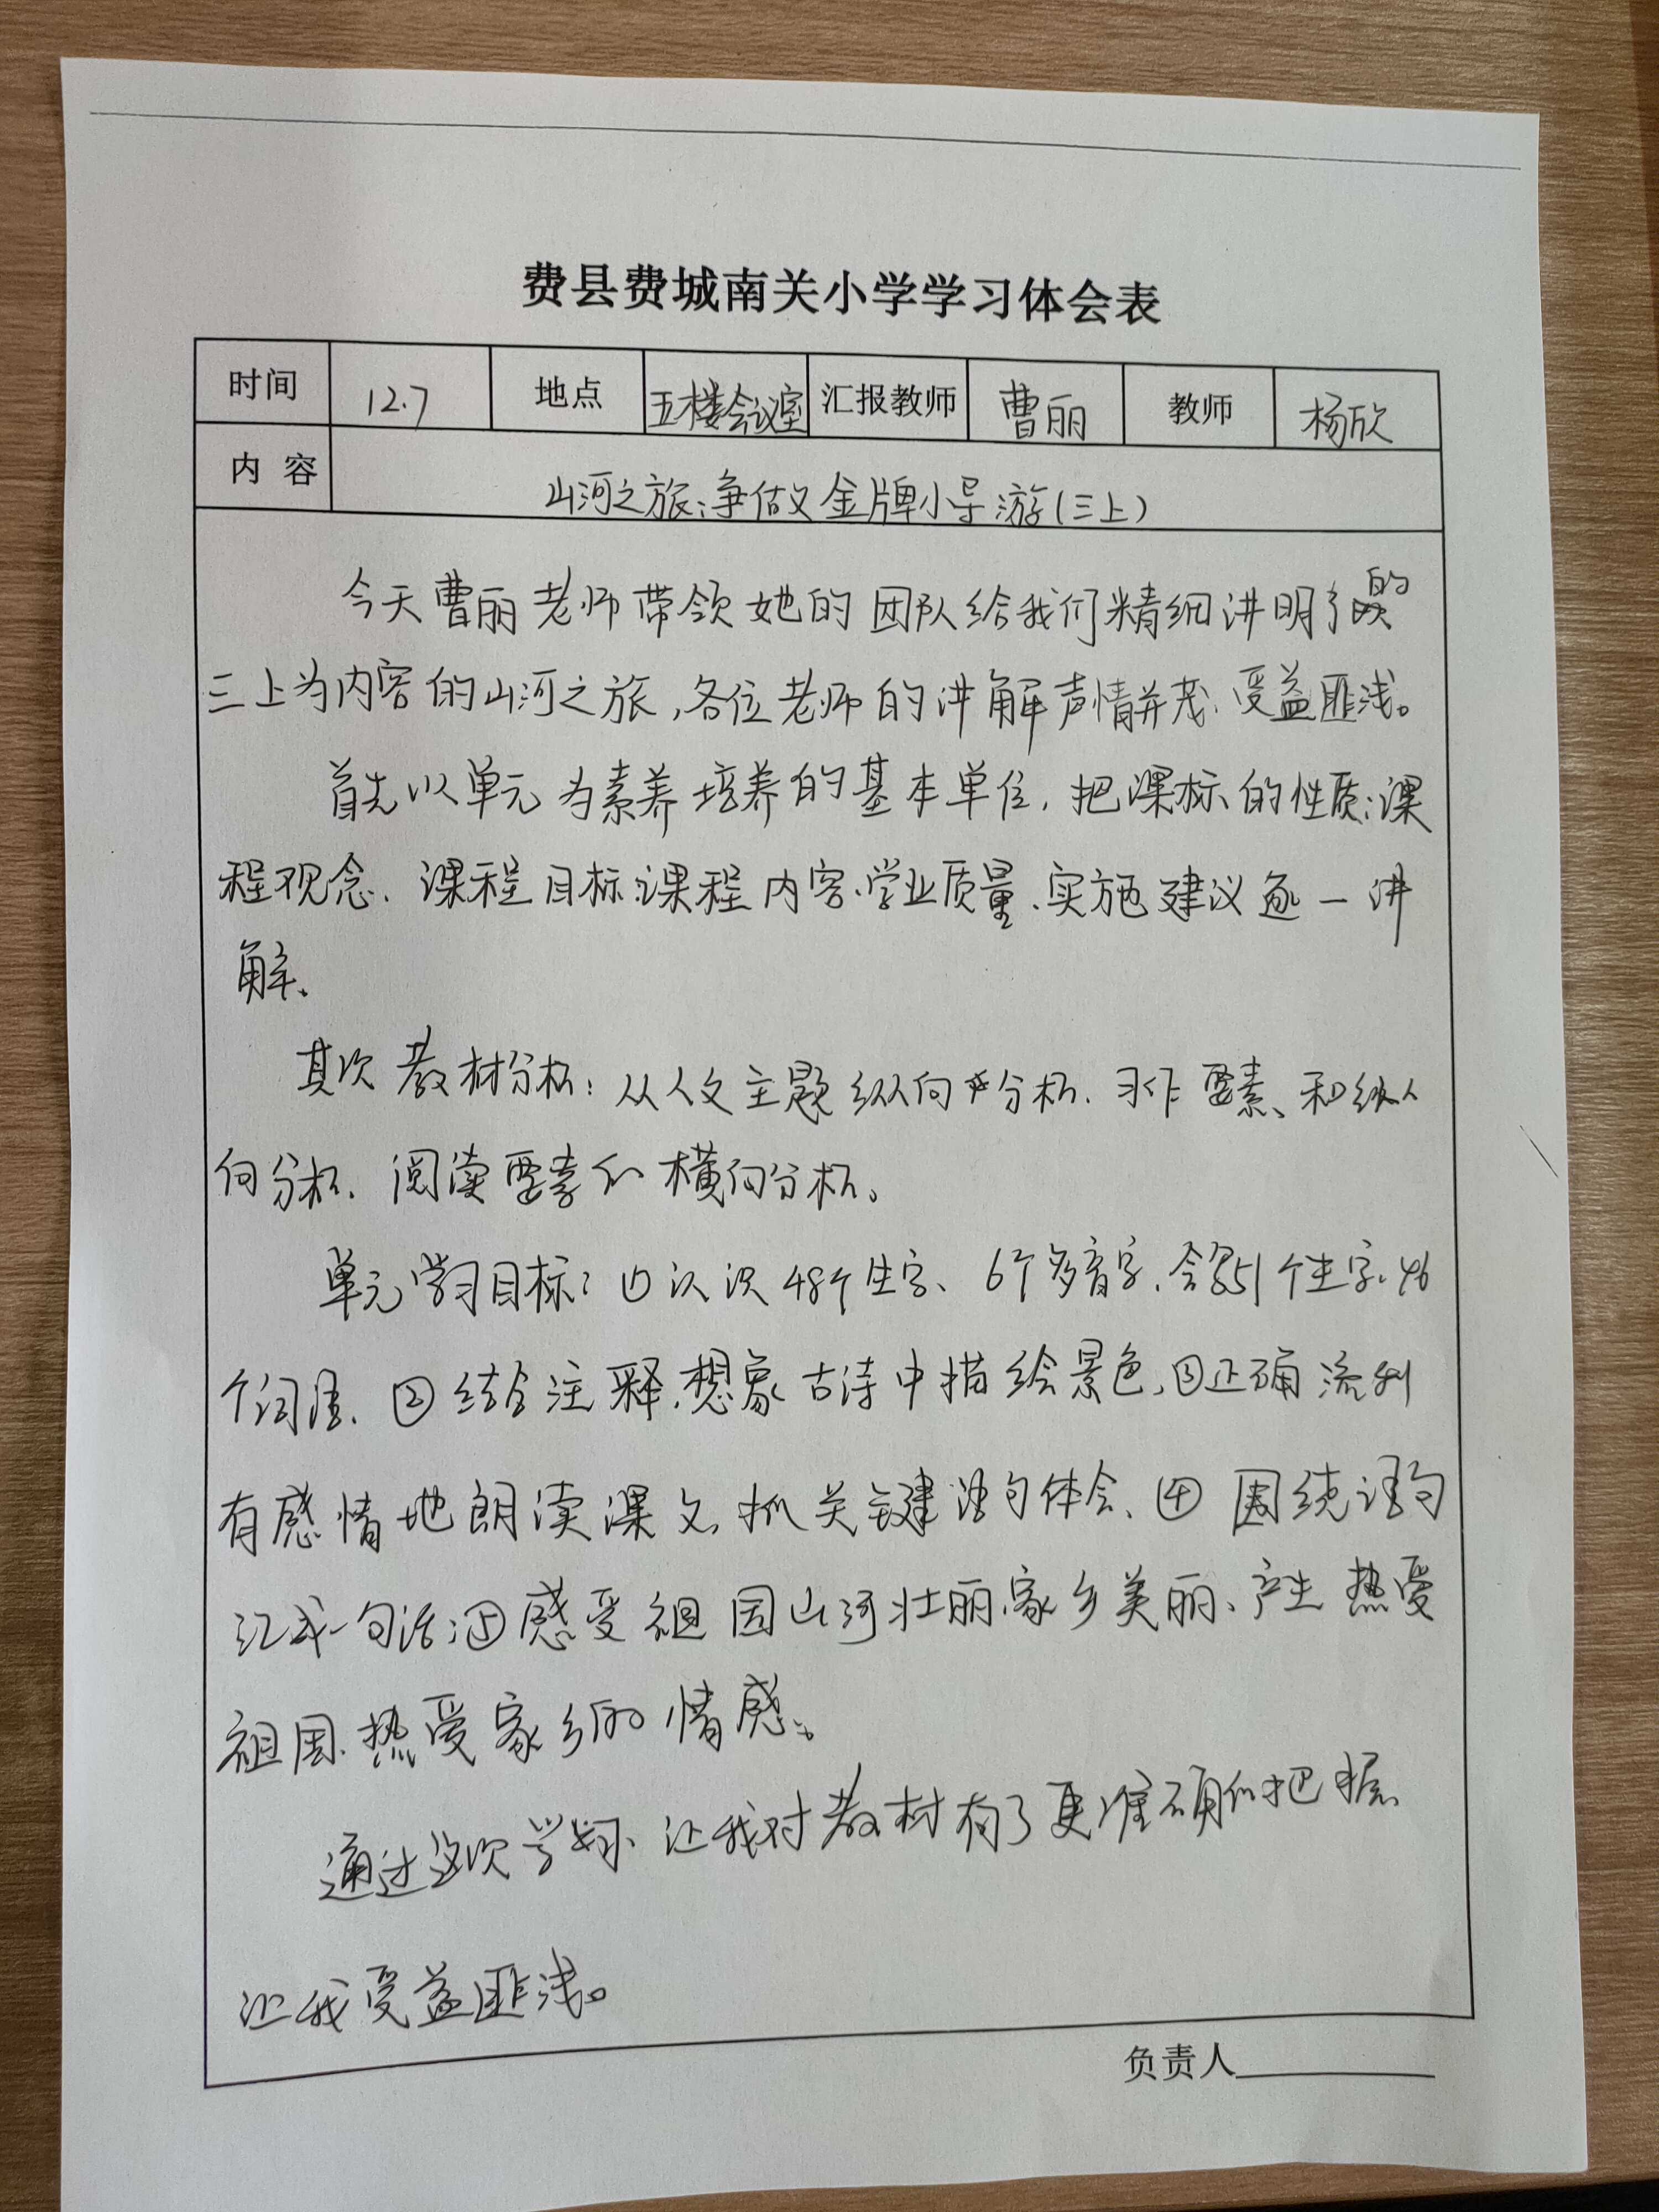 费县费城南关小学学习体会表
时间 12.7 地点 五楼会议室 汇报教师 曹丽 教师 杨欣
内容 山河之旅:争做金牌小导游(三上)
今天曹丽老师带领她的团队给我们精细讲明了的
三上为内容的山河之旅,各位老师的讲解声情并茂、受益匪浅。
首先以单元为素养培养的基本单位,把课标的性质、课
程观念、课程目标、课程内容、学业质量、实施建议逐一讲
解、
其次教材分析:从人文主题纵向分析、习作要素、和纵
向分析、阅读要素的横向分析。
单元学习目标:①认识48个生字、6个多音字、会写51个生字、46
个词语、②结合注释,想象古诗中描绘景色、③正确流利
有感情地朗读课文,抓关键语句体会、④围绕语句
记成一句话;⑤感受祖国山河壮丽、家乡美丽、产生热爱
祖国、热爱家乡的情感。
通过这次学习、让我对教材有了更准确的把握、
让我受益匪浅。
负责人